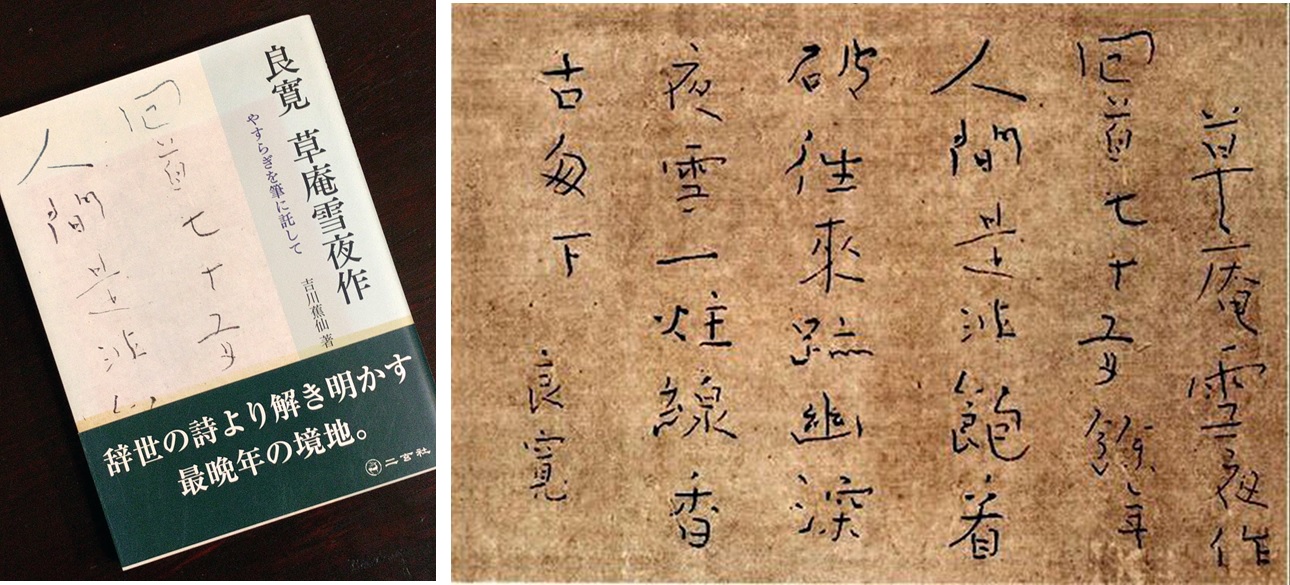 良寛 草庵雪夜作
やすらぎを筆に託して
吉川蕉仙 著
回首七十有
人間是非
辞世の詩より解き明かす
最晩年の境地。
二玄社
草庵雪夜作
回首七十有餘年
人間是非飽看
破往來跡幽深
夜雪一炷線香
古匆下 良寛